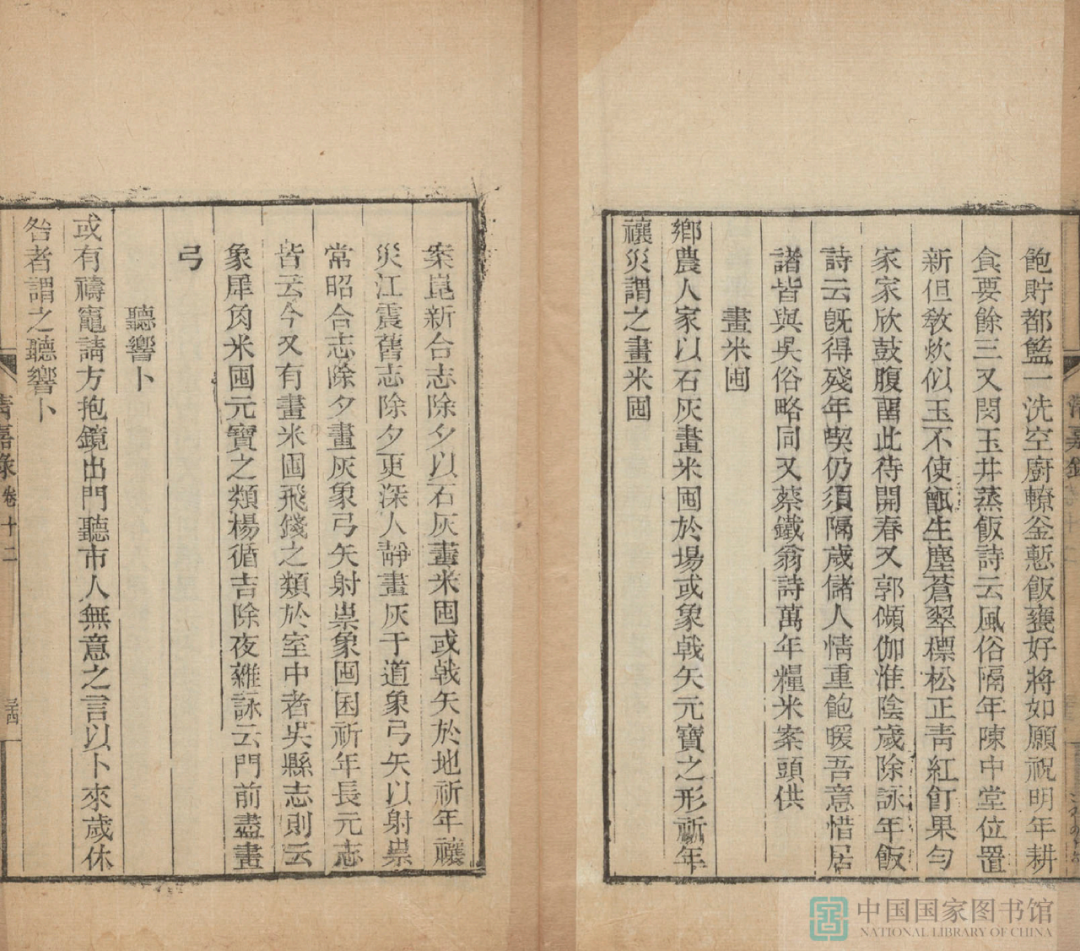 飽貯都籃一洗空廚轑釜慙飯甕好將如願祝明年耕
食要餘三又閔玉井蒸飯詩云風俗隔年陳中堂位置
新但敎炊似玉不使甑生塵蒼翠標松正靑紅飣果勻
家家欣鼓腹畱此待開春又郭頻伽淮陰歲除詠年飯
詩云旣得殘年喫仍須隔歲儲人情重飽暖吾意惜居
諸皆與吳俗略同又蔡鐵翁詩萬年糧米案頭供
畫米囤
鄉農人家以石灰畫米囤於場或象戟矢元寶之形祈年
禳災謂之畫米囤
案崑新合志除夕以石灰畫米囤或戟矢於地祈年禳
災江震舊志除夕更深人靜畫灰于道象弓矢以射祟
常昭合志除夕畫灰象弓矢射祟象囤囷祈年長元志
皆云今又有畫米囤飛錢之類於室中者吳縣志則云
象犀角米囤元寶之類楊循吉除夜雜詠云門前盡畫
弓
聽響卜
或有禱竈請方抱鏡出門聽市人無意之言以卜來歲休
咎者謂之聽響卜
淸嘉錄 卷十二
中国国家图书馆
NATIONAL LIBRARY OF CHINA